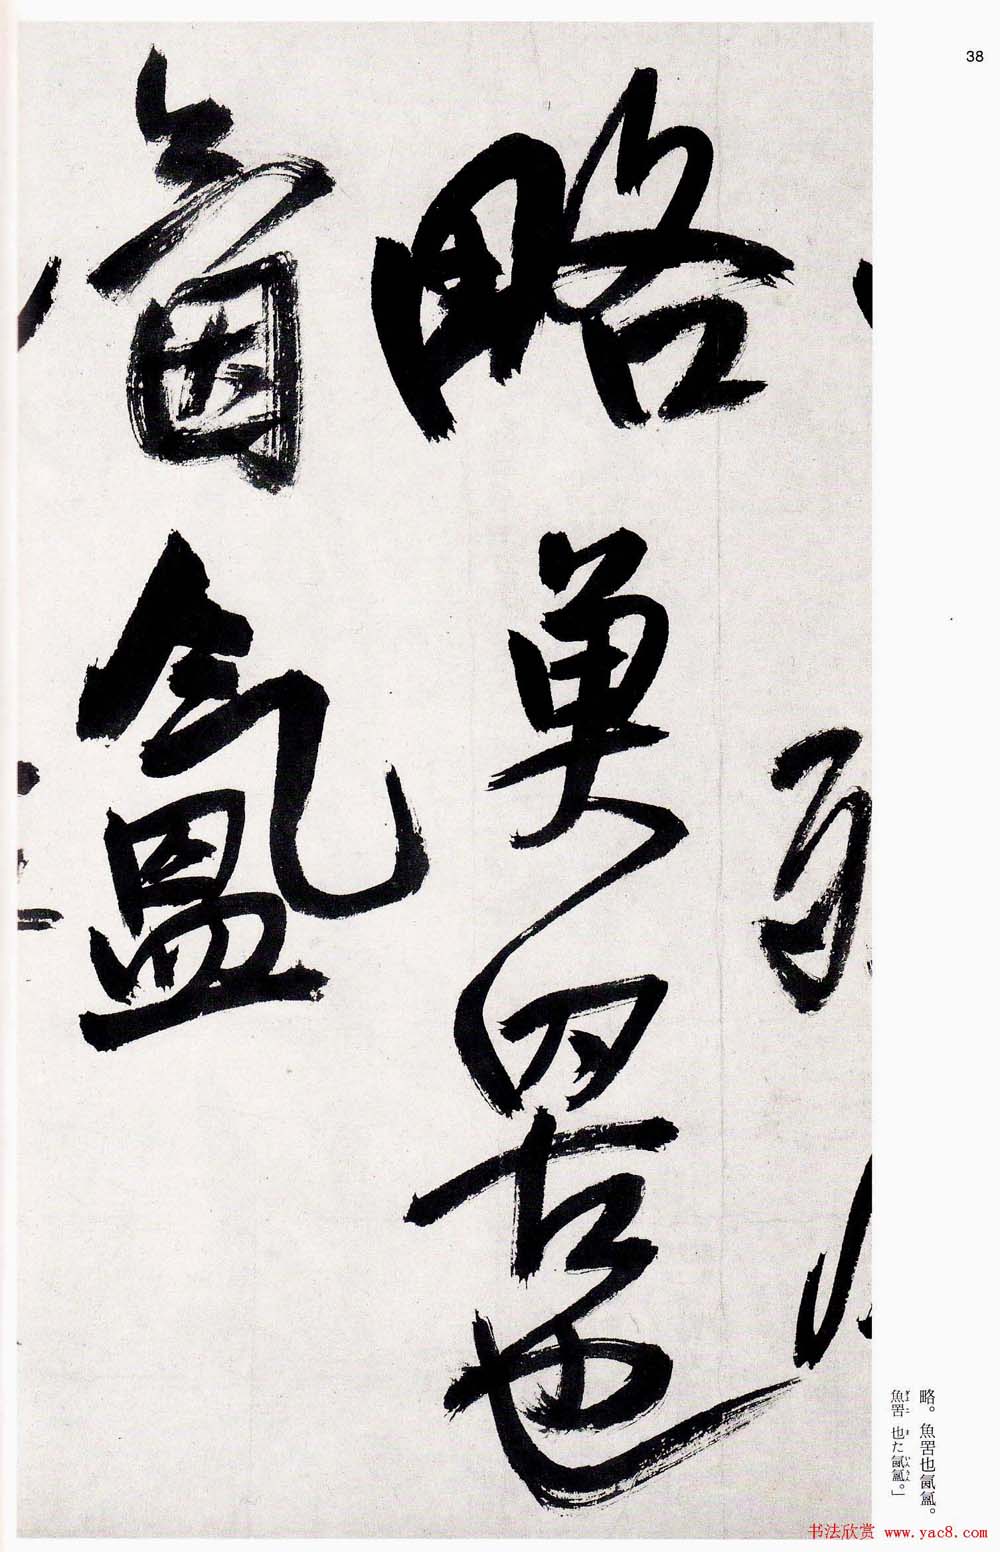 38
略魚罟也
氤氳
略。魚罟也氤氳。
魚罟也た氤氳。」
ぎょこ
ま
いんうん
书法欣赏 www.yac8.com